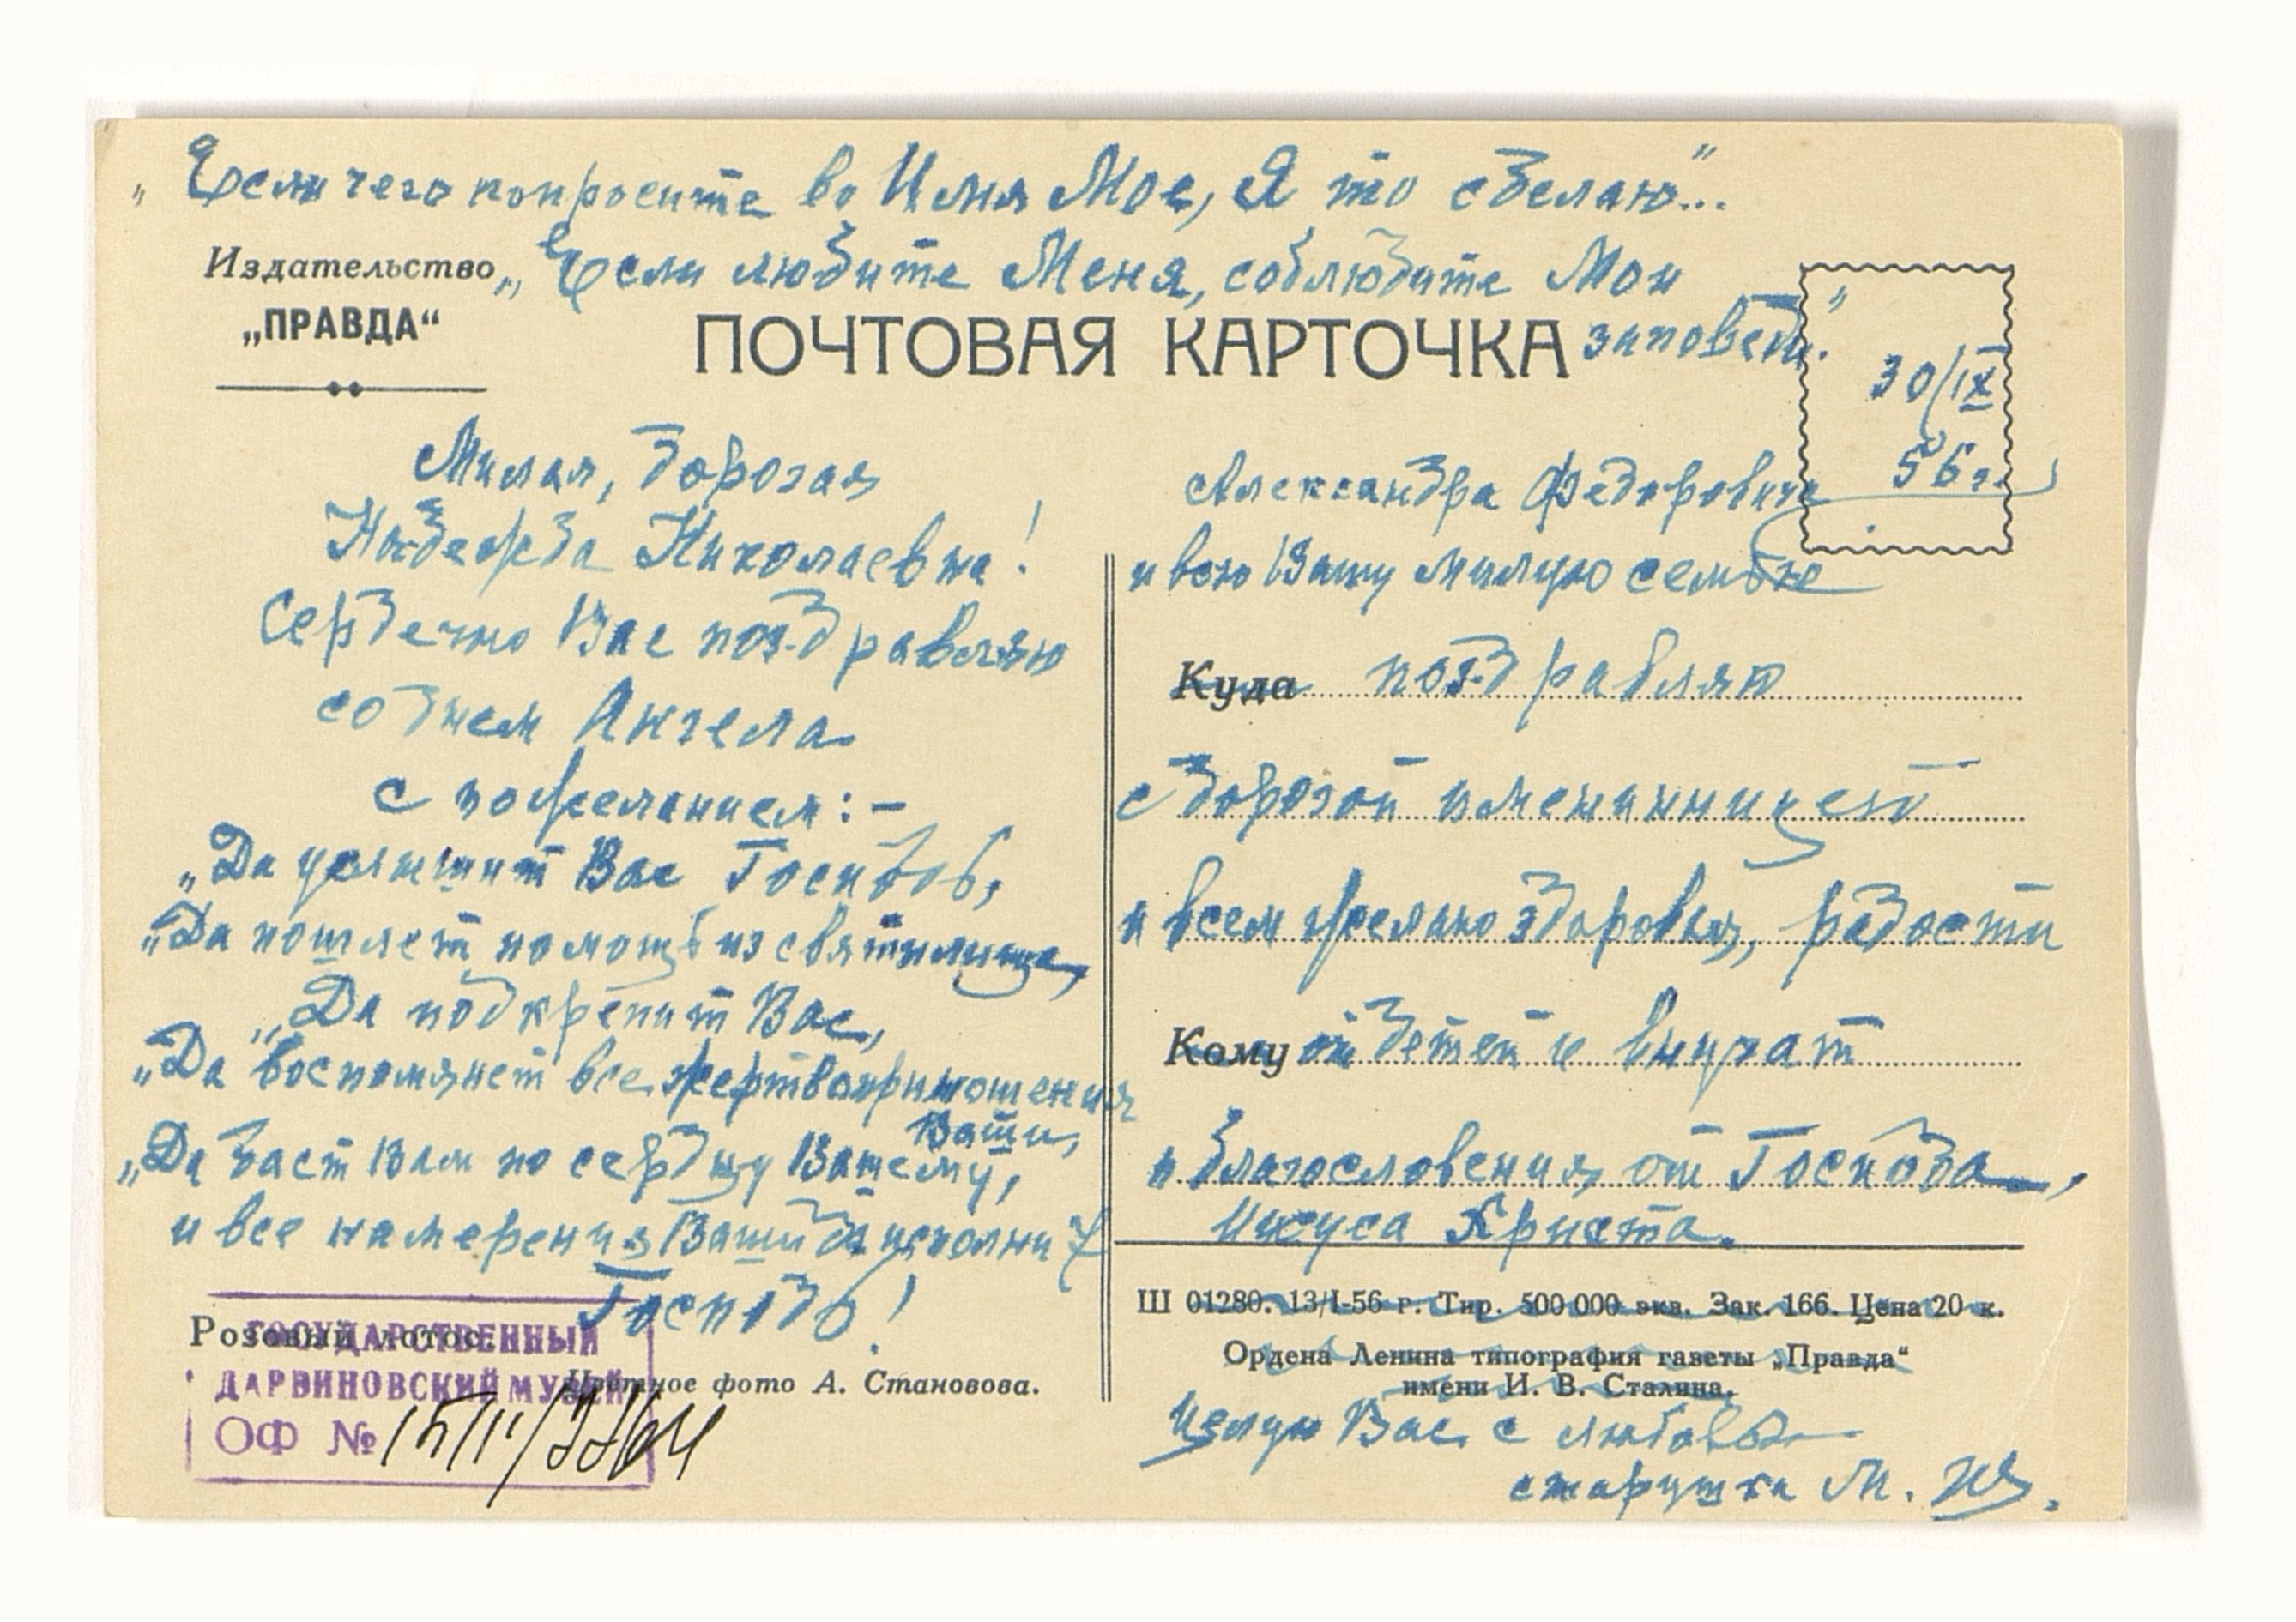 „Если чего попросите во Имя Мое, Я то сделаю"...
„Если любите Меня, соблюдите Мои
заповеди."
Издательство
„ПРАВДА“
ПОЧТОВАЯ КАРТОЧКА
30/IX
56 г.
Милая, дорогая
Надежда Николаевна!
Сердечно Вас поздравляю
со днем Ангела
с пожеланием: -
„Да услышит Вас Господь,
„Да пошлет помощь из святилища,
„Да подкрепит Вас,
„Да воспомянет все жертвоприношения
Ваши,
„Да даст Вам по сердцу Вашему,
и все намерения Ваши да исполнит
Господь!
Розовый лотос.
Цветное фото А. Становова.
ГОСУДАРСТВЕННЫЙ
ДАРВИНОВСКИЙ МУЗЕЙ
ОФ №
Александра Федоровича
и всю Вашу милую семью
Куда поздравляю
с дорогой именинницей
и всем желаю здоровья, радости
Кому от детей и внучат
и благословения от Господа
Иисуса Христа.
Ш 01280. 13/I-56 г. Тир. 500 000 экз. Зак. 166. Цена 20 к.
Ордена Ленина типография газеты „Правда“
имени И. В. Сталина.
Целую Вас с любовью
старушка М.